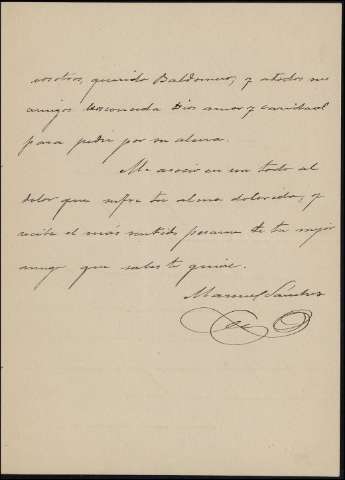 vosotros, querido Baldomero, y a todos sus
amigos les conceda Dios amor y caridad
para pedir por su alma.
Me asocio en un todo al
dolor que sufre tu alma dolorida, y
recibe el más sentido pesame de tu mejor
amigo que sabes te quiere.
Manuel Santos